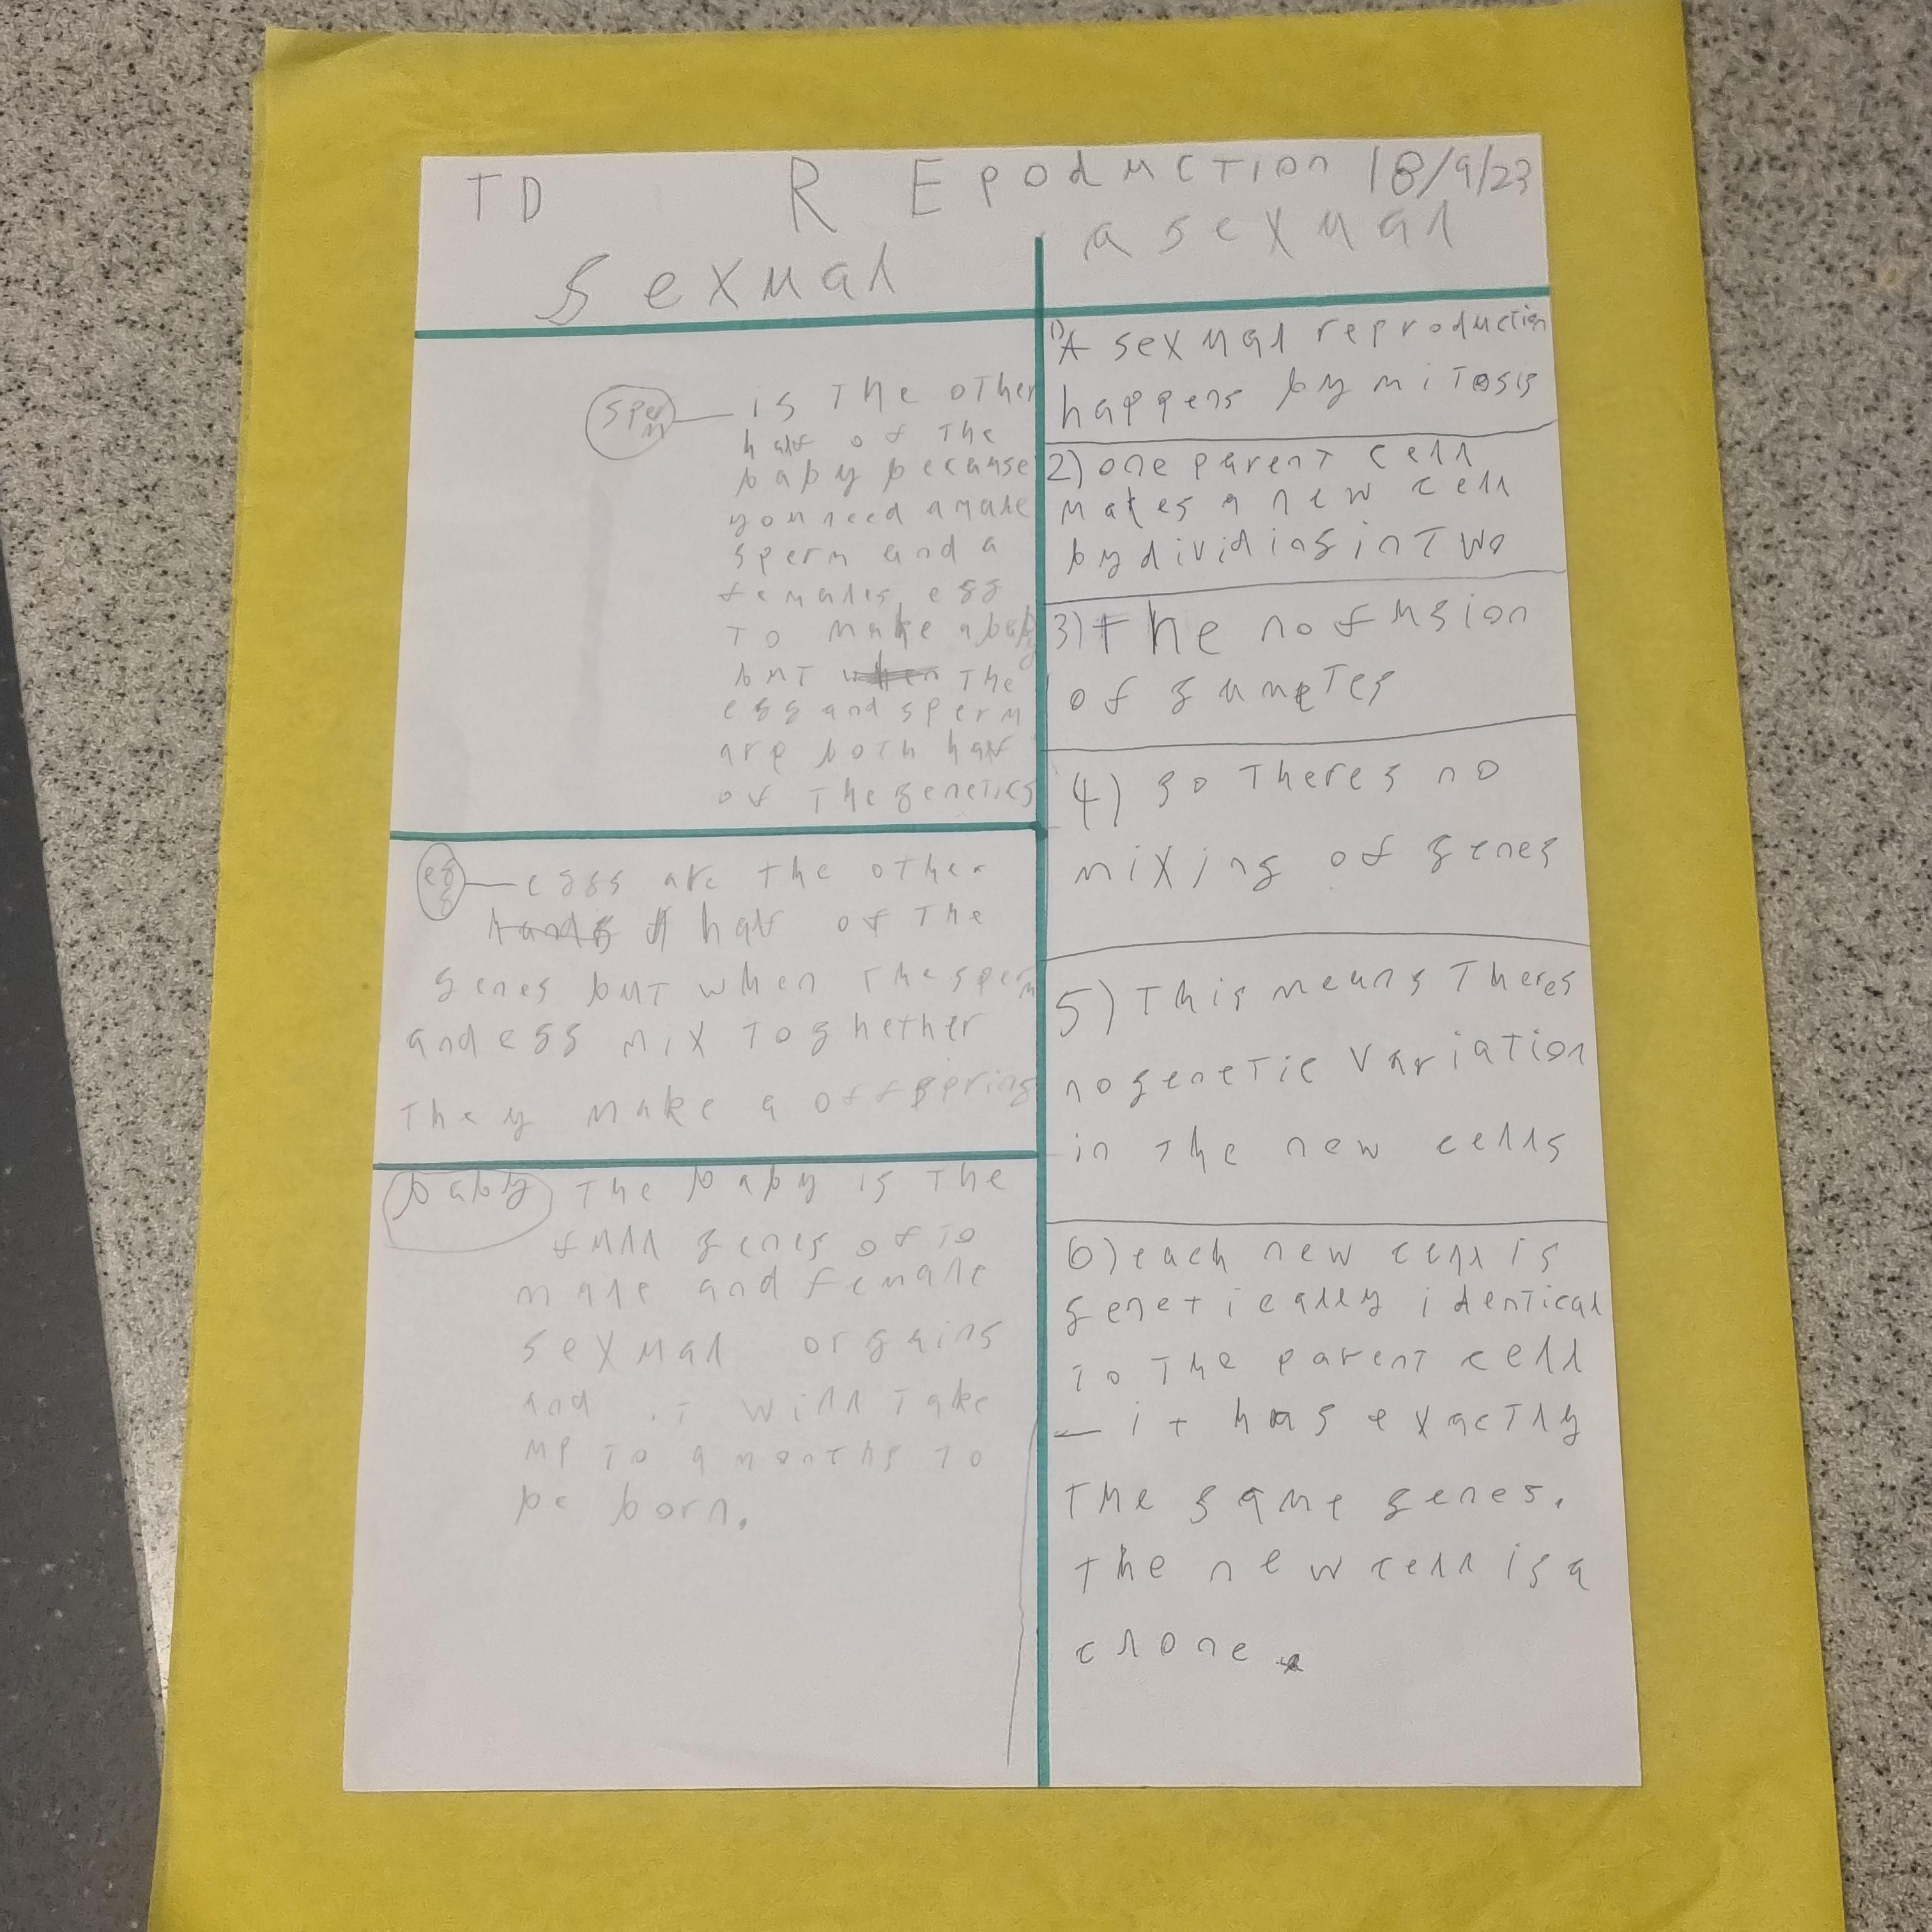 TD REpoduction 18/9/23
sexual
asexual
sperm is the other
half of the
baby because
you need a male
sperm and a
females egg
to make a baby
but the
egg and sperm
are both half
of the genetics
egg eggs are the other
half of the
genes but when the sperm
and egg mix toghether
they make a offspring
baby the baby is the
full genes of to
male and female
sexual orgains
and it will take
up to 9 months to
be born.
1) A sexual reproduction
happens by mitosis
2) one parent cell
makes a new cell
by dividing in two
3) the no fusion
of gametes
4) so theres no
mixing of genes
5) this means theres
no genetic variation
in the new cells
6) each new cell is
genetically identical
to the parent cell
– it has exactly
the same genes.
the new cell is a
clone.